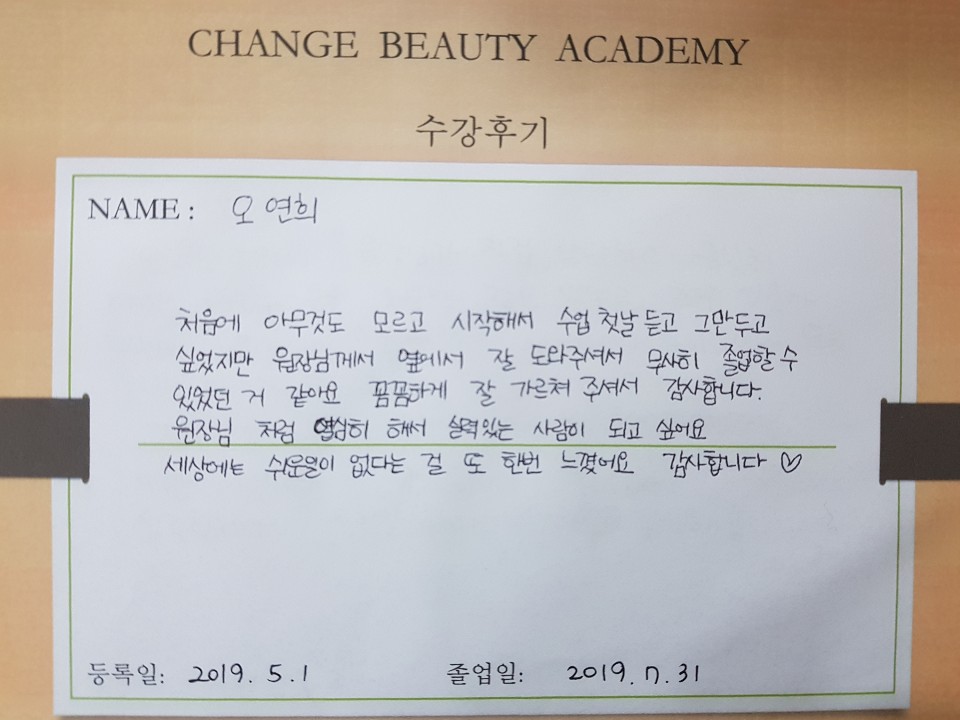 CHANGE BEAUTY ACADEMY
수강후기
NAME : 오 연희
처음에 아무것도 모르고 시작해서 수업 첫날 듣고 그만두고
싶었지만 원장님께서 옆에서 잘 도와주셔서 무사히 졸업할 수
있었던 거 같아요 꼼꼼하게 잘 가르쳐 주셔서 감사합니다.
원장님 처럼 열심히 해서 실력있는 사람이 되고 싶어요
세상에는 쉬운일이 없다는 걸 또 한번 느꼈어요 감사합니다 ♡
등록일: 2019. 5. 1 졸업일: 2019. 7. 31